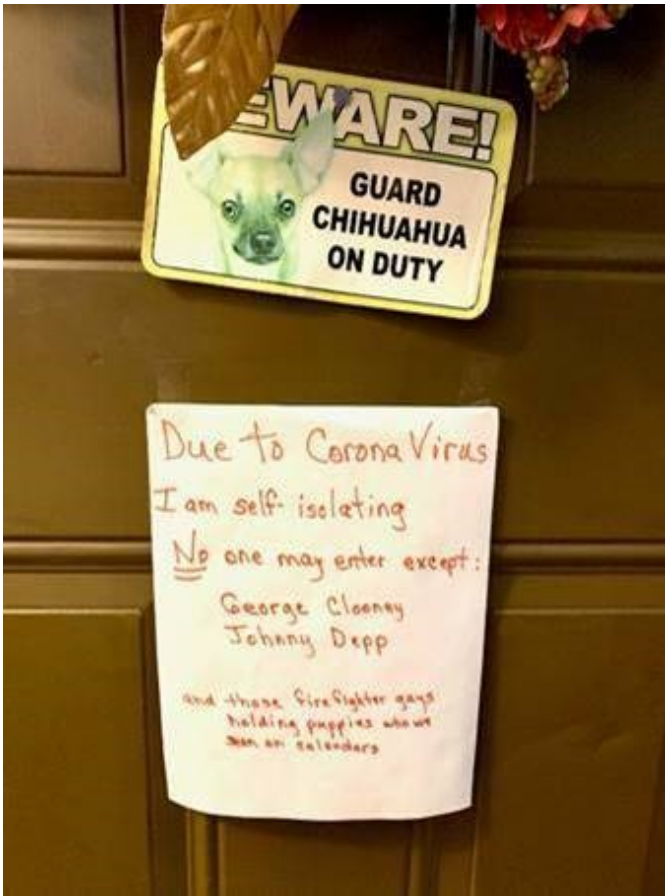 EWARE!
GUARD
CHIHUAHUA
ON DUTY
Due to Corona Virus
I am self-isolating
No one may enter except:
George Clooney
Johnny Depp
and those firefighter guys
holding puppies
on calendars